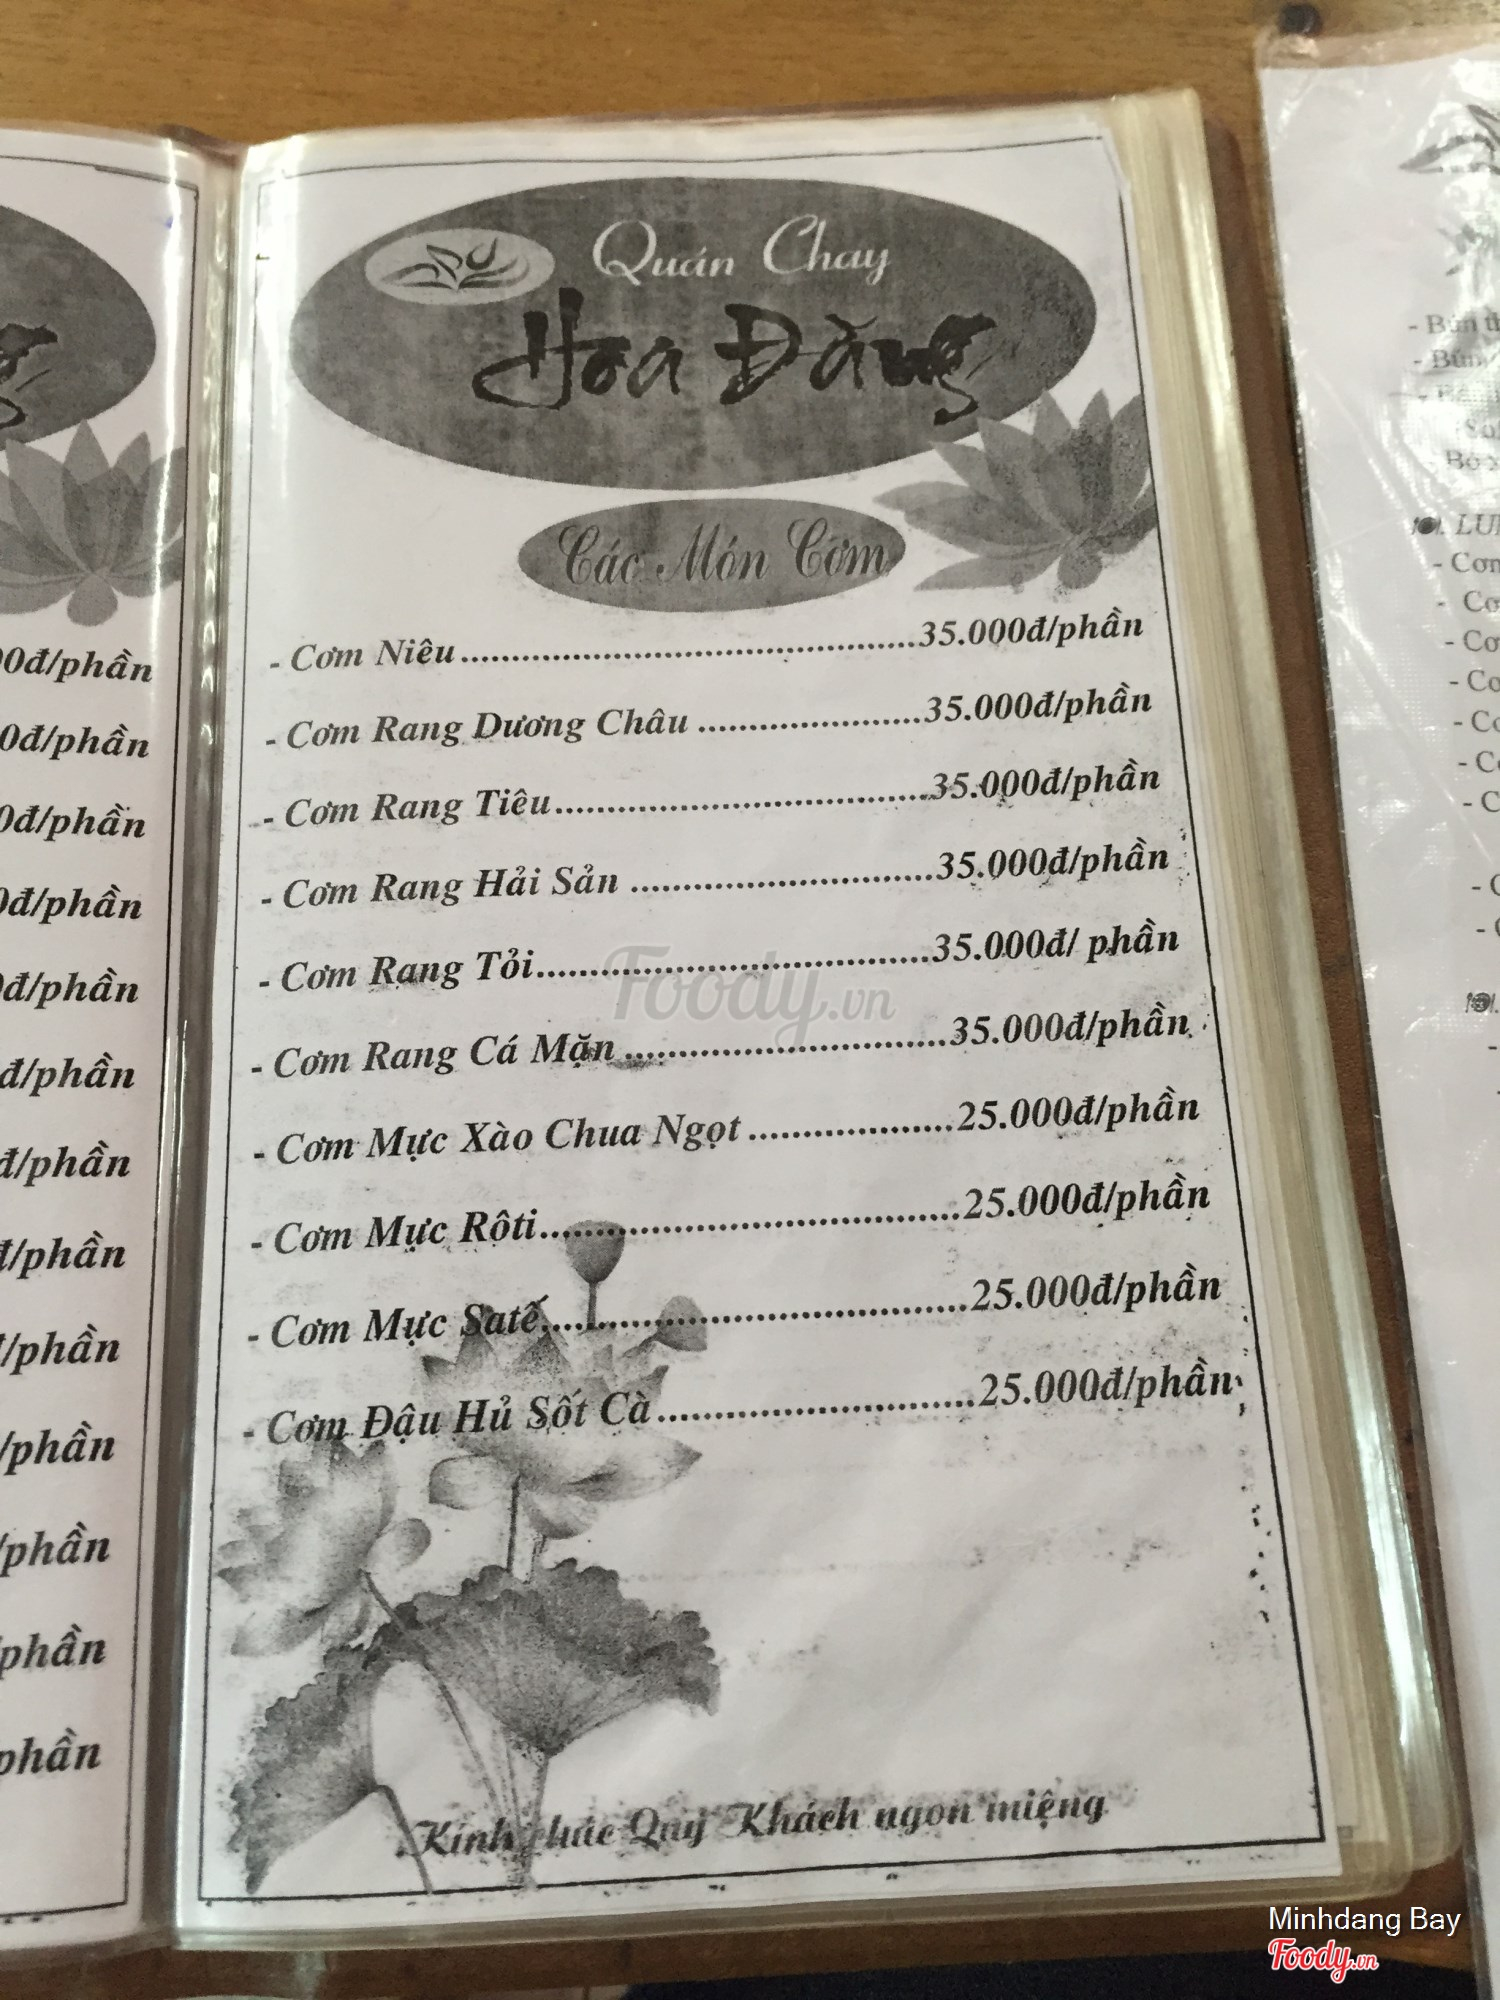 Quán Chay
Hoa Đăng
Các Món Cơm
- Cơm Niêu..............................................35.000đ/phần
- Cơm Rang Dương Châu ......................35.000đ/phần
- Cơm Rang Tiêu.....................................35.000đ/phần
- Cơm Rang Hải Sản ..............................35.000đ/phần
- Cơm Rang Tỏi......................................35.000đ/ phần
- Cơm Rang Cá Mặn ...............................35.000đ/phần
- Cơm Mực Xào Chua Ngọt ...................25.000đ/phần
- Cơm Mực Rôti......................................25.000đ/phần
- Cơm Mực Satế......................................25.000đ/phần
- Cơm Đậu Hủ Sốt Cà............................25.000đ/phần
Kính chúc Quý Khách ngon miệng
0đ/phần
0đ/phần
0đ/phần
0đ/phần
đ/phần
đ/phần
đ/phần
đ/phần
/phần
/phần
/phần
/phần
phần
phần
- Bún
- Bún
- Cơm
Foody.vn
Minhdang Bay
Foody.vn